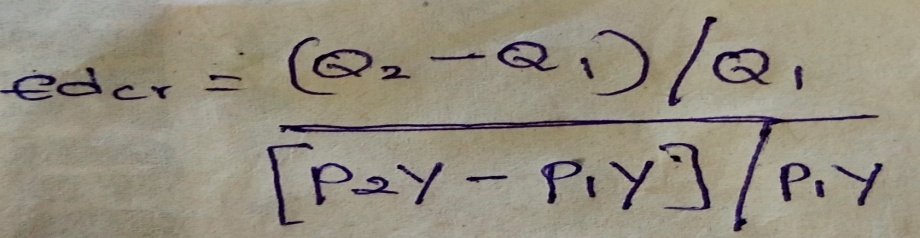 edcr = (Q₂ - Q₁) / Q₁
[P₂Y - P₁Y] / P₁Y